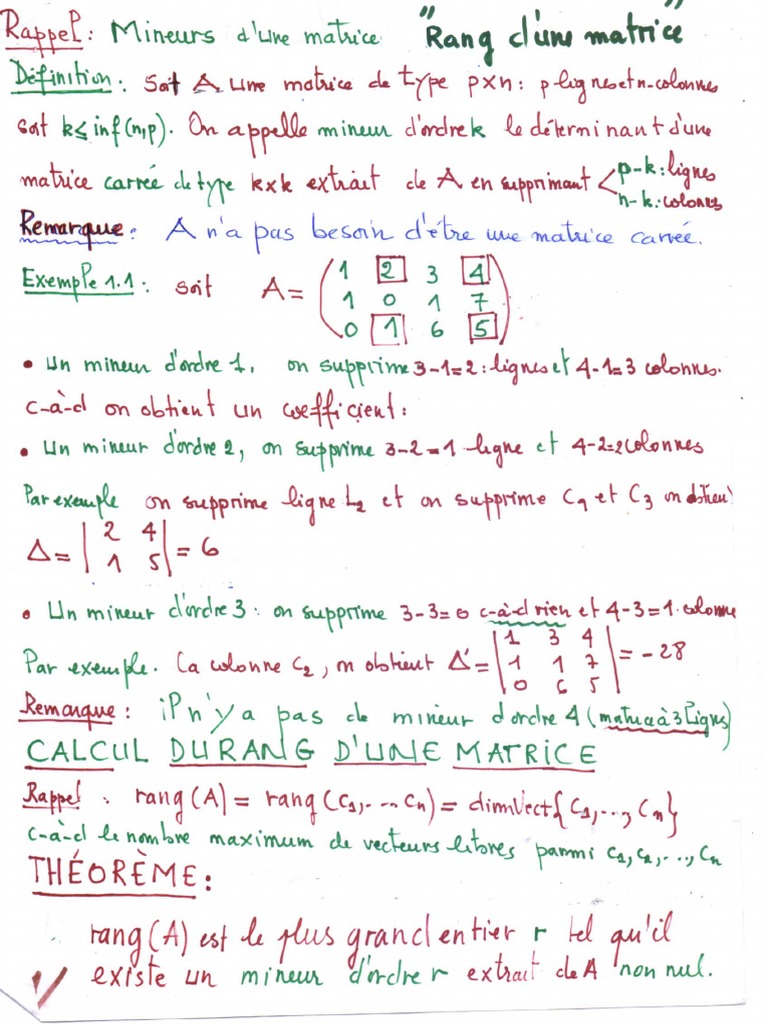 Rappel: Mineurs d'une matrice "Rang d'une matrice"
Définition: Soit A une matrice de type p×n: p-lignes et n-colonnes
soit k≤inf(n,p). On appelle mineur d'ordre k le déterminant d'une
matrice carrée de type k×k extrait de A en supprimant < p-k: lignes
n-k: colones
Remarque: A n'a pas besoin d'être une matrice carrée.
Exemple 1.1: soit A= ( 1 2 3 4
1 0 1 7
0 1 6 5 )
• Un mineur d'ordre 1, on supprime 3-1=2: lignes et 4-1=3 colonnes.
c-à-d on obtient un coefficient:
• Un mineur d'ordre 2, on supprime 3-2=1 ligne et 4-2=2 colonnes
Par exemple on supprime ligne L2 et on supprime C1 et C3 on obtient
Δ= | 2 4
1 5 | = 6
• Un mineur d'ordre 3: on supprime 3-3=0 c-à-d rien et 4-3=1 colonne
Par exemple. la colonne C2, on obtient Δ'= | 1 3 4
1 1 7
0 6 5 | = -28
Remarque: il n'y a pas de mineur d'ordre 4 (matrice à 3 lignes)
CALCUL DU RANG D'UNE MATRICE
Rappel: rang(A)= rang(C1,... Cn)= dim Vect{C1,..., Cn}
c-à-d le nombre maximum de vecteurs libres parmi C1, C2,..., Cn
THÉORÈME:
rang(A) est le plus grand entier r tel qu'il
existe un mineur d'ordre r extrait de A non nul.
1/